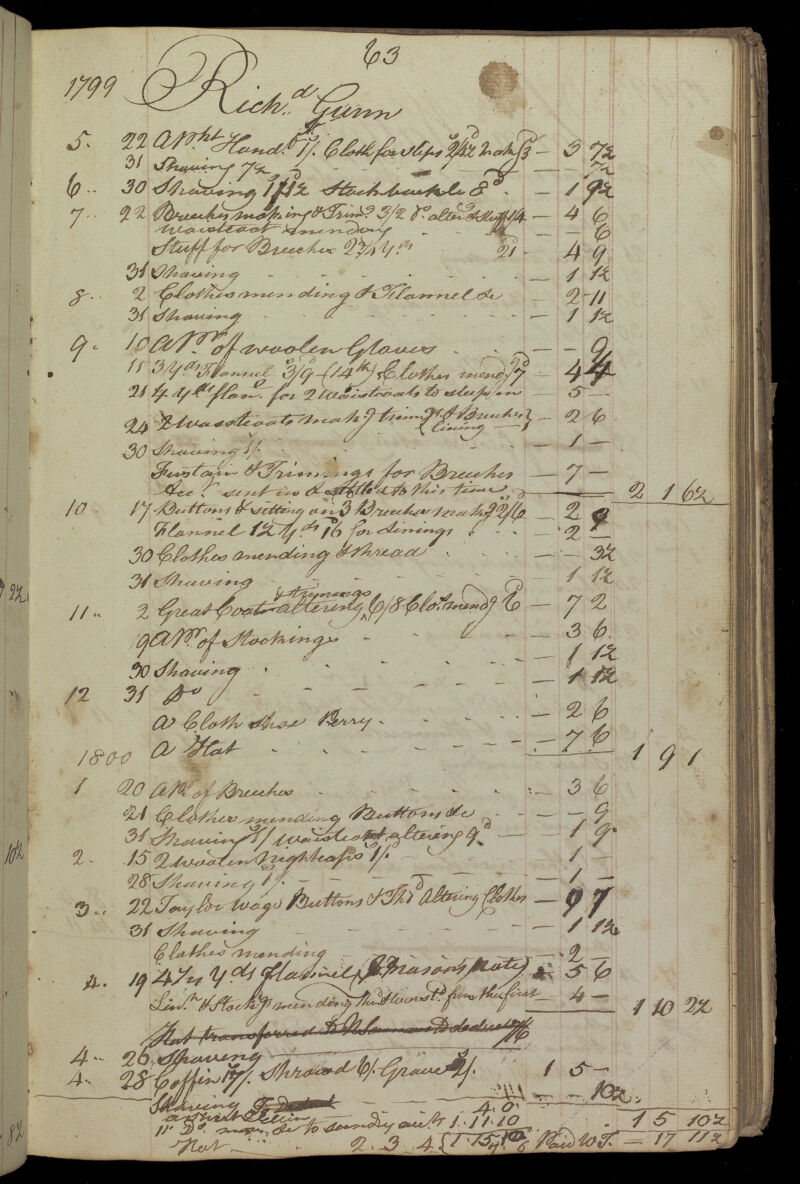 63
1799 Rich.d Gunn
5. 22 A Nht Hand.f 1/. Cloth for slips 2/4½ mak.g 3d — 3 7½
31 Shaving 7½ — — 7½
6.. 30 Shaving 1/1½ Stockbuckle 8d. — 1 9½
7.. 22 Breeches making & Trim.g 3/2 Do. alter.g & Stuff 1/4 — 4 6
Waistcoat mending — — 6
Stuff for Breeches 2¾ yds 21 — 4 9
31 Shaving — 1 1½
8.. 2 Clothes mending & Flannel &c — 2 11
31 Shaving — 1 1½
9. 10 A Pr. of woolen Gloves — — 9
11 3 yds Flannel 3/9 (14th) Clothes mend.g 7d — 4 4
21 4 yds flan.l for 2 Waistcoats to sleep in — 5 —
24 2 Waistcoats mak.g trim.gs & Breeches lining — 2 6
30 Shaving 1/. — 1 —
Fustain & Trimmings for Breeches — 7 —
Acct. sent in & settled to this time 2 1 6½
10 17 Buttons & sitting on 3 Breeches mak.g 2/6 — 2 9
Flannel 1½ yds 16 for Linings — 2 —
30 Clothes mending & thread — — 3½
31 Shaving — 1 1½
& trimmings
11.. 2 Great Coat altering 6/8 Clo.s mend.g 6d — 7 2
9 A Pr. of Stockings — 3 6
30 Shaving — 1 1½
12 31 Do — 1 1½
A Cloth Shoe Berry. — 2 6
A Hat — 7 6 1 9 1
1800
1 20 A Pr. of Breeches — 3 6
21 Clothes mending Buttons &c — — 9
31 Shaving 1/ waistcoat altering 9d — 1 9
2. 15 2 Woolen Nightcaps 1/. — 1 —
28 Shaving 1/. — 1 —
3.. 22 Taylor Wage Buttons & Thd. Altering Clothes — 9 7
31 Shaving — 1 1½
Clothes mending — 2 —
4. 19 yds Flannel (J. Mason's Note) 5 6
Lin.n & Stock.gs mending from the first — 4 — 1 10 2½
Hat transferred to
4.. 26 Shaving
4. 28 Coffin 17/. Shrowd 6/. Grave 2/. 1 5 —
— — 10½.
Shaving 4. 0
to sundry 1. 11. 10 1 5 10½
Hat 2. 3. 4 1. 15. 10 Paid W.T. — 17 11½